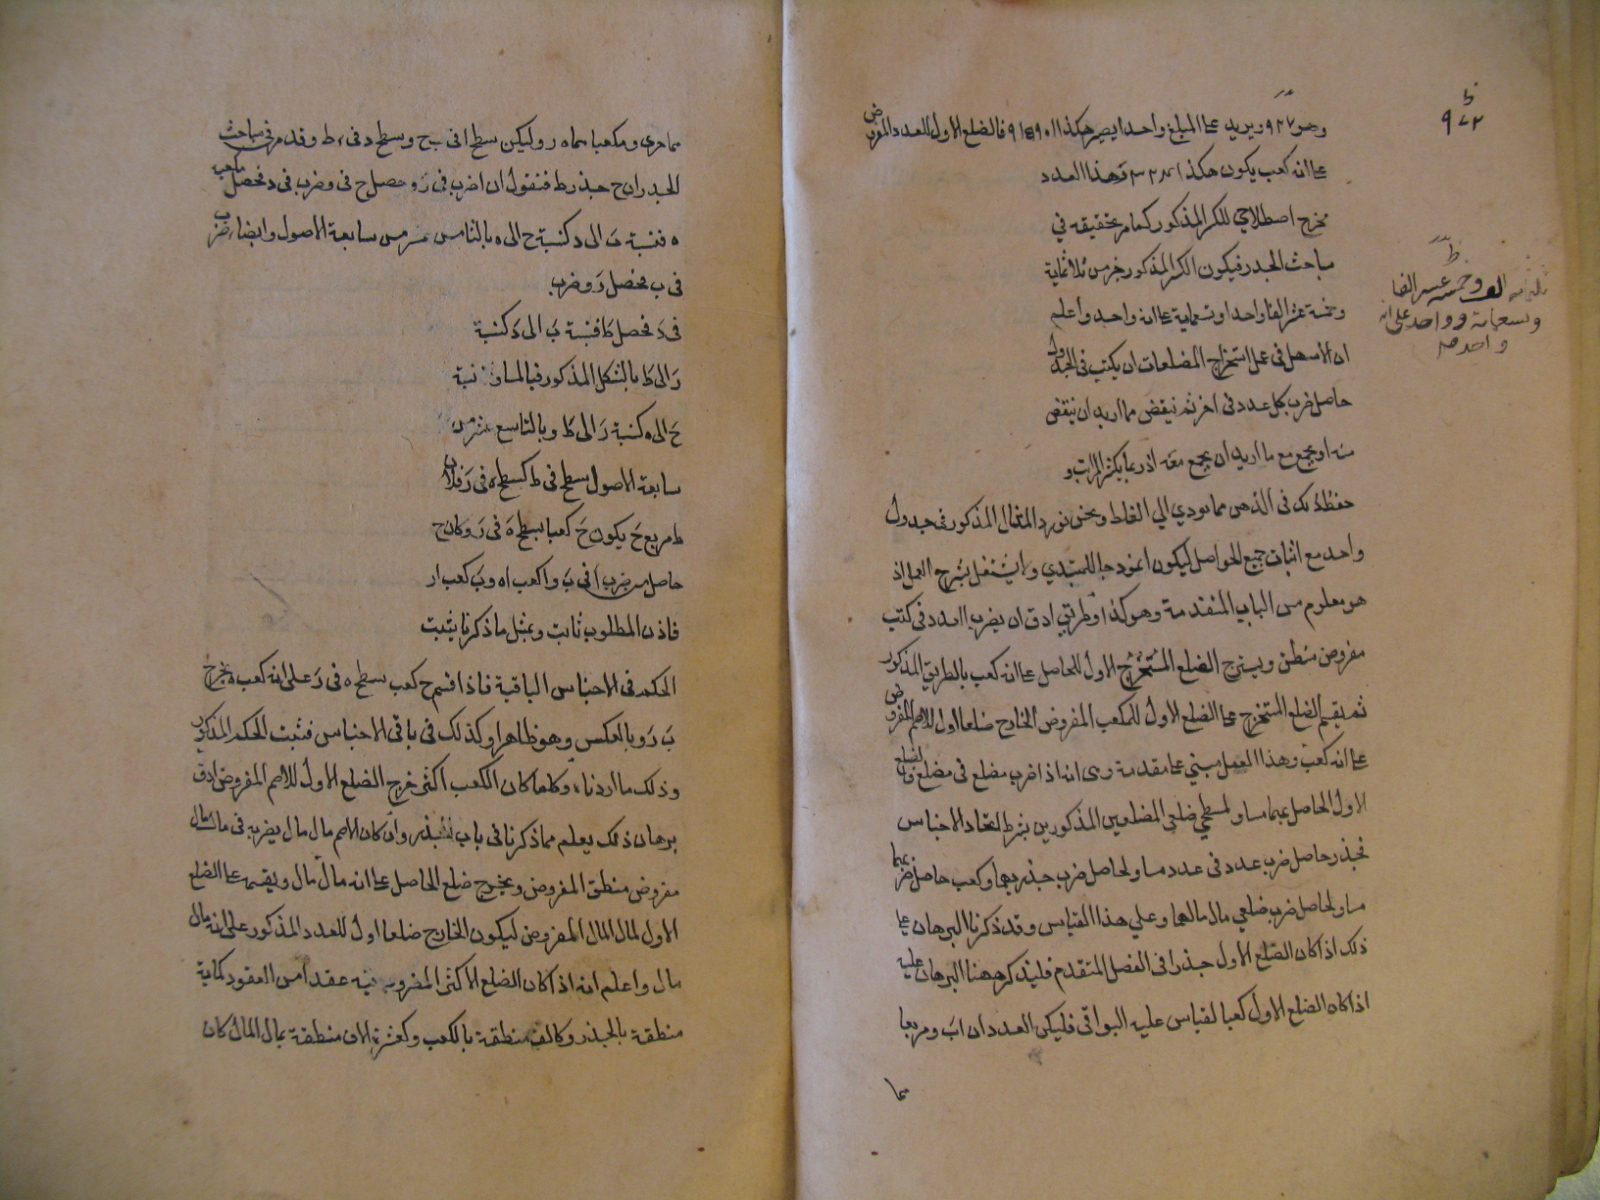 وهو ٩٢٧ ونزيد على المبلغ واحدا يصير هكذا فالضلع الاول للعدد المفروض
على انه كعب يكون هكذا فهذا العدد
مخرج اصطلاحي للكسر المذكور كما مر تحقيقه في
مباحث الجذر فيكون الكسر المذكور خرمن ثلاثماية
وخمسة عشر الفا واحدا وتسعماية على انه واحد واعلم
ان الاسهل في عمل استخراج المضلعات ان يكتب في الجدول
حاصل ضرب كل عدد في اخر ثم ينقض مما اريد ان ينقض
منه او يجمع مع ما اريد ان يجمع معه اذ ربما يكثر المراتب و
حفظ ذلك في الذهن مما يودي الي الغلط ونحن نورد المثال المذكور في جدول
واحد مع اثبات جميع الحواصل ليكون انموذجا للمبتدي ولا يشتغل بشرح العمل اذ
هو معلوم من الباب المتقدمة وهو كذا وطريق ادق ان يضرب العدد في كعب
مفروض منطق ويستخرج الضلع المستخرج الاول للحاصل على انه كعب بالطريق المذكور
ثم يقسم الضلع المستخرج على الضلع الاول للمكعب المفروض الخارج ضلعا اول للاصم المفروض
على انه كعب وهذا العمل مبني على مقدمة وهى انه اذا ضرب مضلع في مضلع فان الضلع
الاول الحاصل عنهما مساو لمسطح ضلعي المضلعين المذكورين بشرط اتحاد الاجناس
فجذر حاصل ضرب عدد في عدد مساو لحاصل ضرب جذريهما وكعب حاصل ضربهما
مساو لحاصل ضرب ضلعي مال مالهما وعلي هذا القياس وقد ذكرنا البرهان على
ذلك اذا كان الضلع الاول جذرا في الفصل المتقدم فليذكر ههنا البرهان عليه
اذا كان الضلع الاول كعبا لقياس عليه البواقي فليكن العددان اب ومربعا
مما
الف وخمسة عشر الفا
وتسعماية وواحد على انه
واحد صح
هما حرى ومكعباهما ه ر وليكن سطح ا في ب ح وسطح د في ه ط وقد مر في مباحث
الجذر ان ح جذر ط فنقول ان ا ضرب في ر و حصل ح في وضرب في د فحصل مكعب
ه فنسبة ب الى د كنسبة ح الى ه بالثامن عشر من سابعة الاصول وايضا ضرب
في ب فحصل ر وضرب
في د فحصل ط فنسبة ب الى د كنسبة
ر الى ط بالشكل المذكور فبالمساواة نسبة
ح الى ه كنسبة ر الى ط وبالتاسع عشر من
سابعة الاصول سطح في ط كسطح ه في ر فلان
ط مربع ح يكون ح كعبا بسطح ه في ر وكان ح
حاصل من ضرب ا في ب وا كعب ا ه وب كعب ا ر
فاذن المطلوب ثابت وبمثل ما ذكرنا يثبت
الحكم في الاجناس الباقية فاذا قسم ح كعب سطح ه في ر على انه كعب ه يخرج
ب ر وبالعكس وهو ظاهر وكذلك في باقي الاجناس فثبت الحكم المذكور
وذلك ما اردناه وكلما كان الكعب اكثر خرج الضلع الاول للاصم المفروض ادق
برهان ذلك يعلم مما ذكرنا في باب الجذر وان كان الاصم مال مال يضرب في مال مال
مفروض منطق المفروض ويخرج ضلع الحاصل على انه مال مال ويقسم على الضلع
الاول لمال المال المفروض ليكون الخارج ضلعا اول للعدد المذكور على انه مال
مال واعلم انه اذا كان الضلع الاكثر المضروب فيه عقدا من العقود كماية
منطقة بالجذر وكالف منطقة بالكعب وكعشرة الاف منطقة بمال المال كان